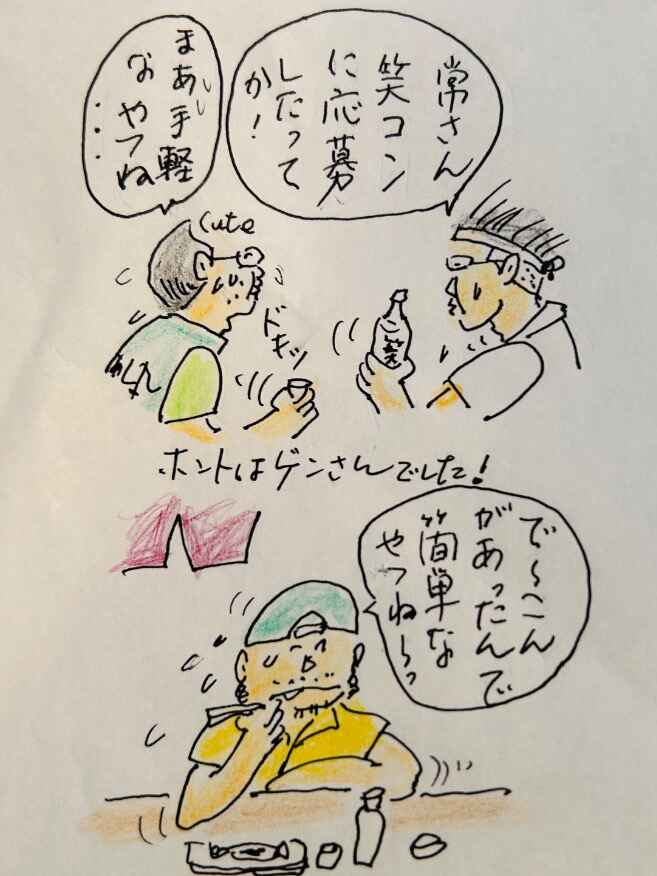 常さん
笑コン
に応募
したって
か!
まあ手軽
なやつね
・・・
cute
ドキッ
笑
ホントはゲンさんでした!
で〜へん
があったんで
簡単な
やつね〜っ